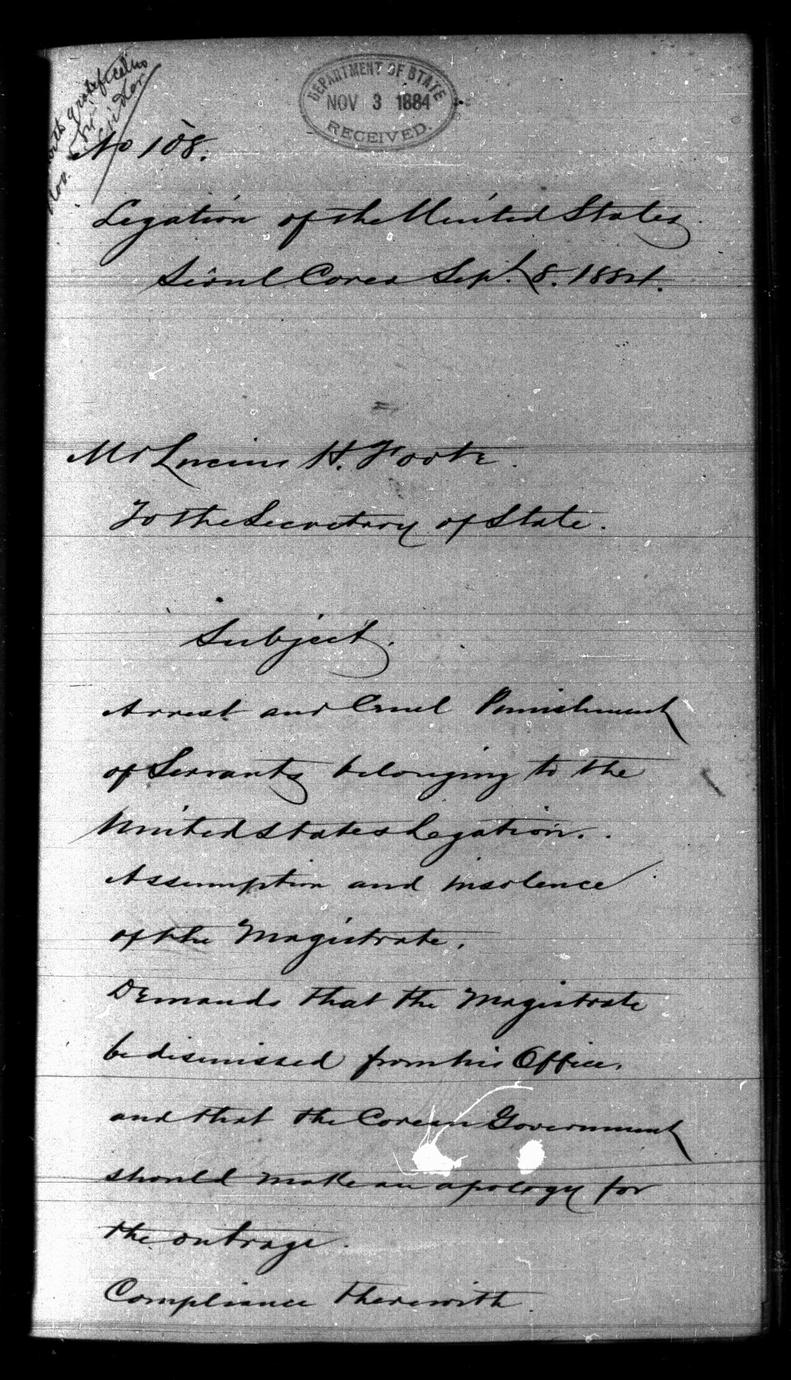 DEPARTMENT OF STATE
NOV 3 1884
RECEIVED.
No 108.
Legation of the United States
Séoul Corea Sept. 8. 1884.
Mr Lucius H. Foote.
To the Secretary of State.
Subject.
Arrest and Cruel Punishment
of Servants belonging to the
United States Legation.
Assumption and insolence
of the Magistrate.
Demands that the Magistrate
be dismissed from his Office.
and that the Corean Government
should make an apology for
the outrage.
Compliance therewith.